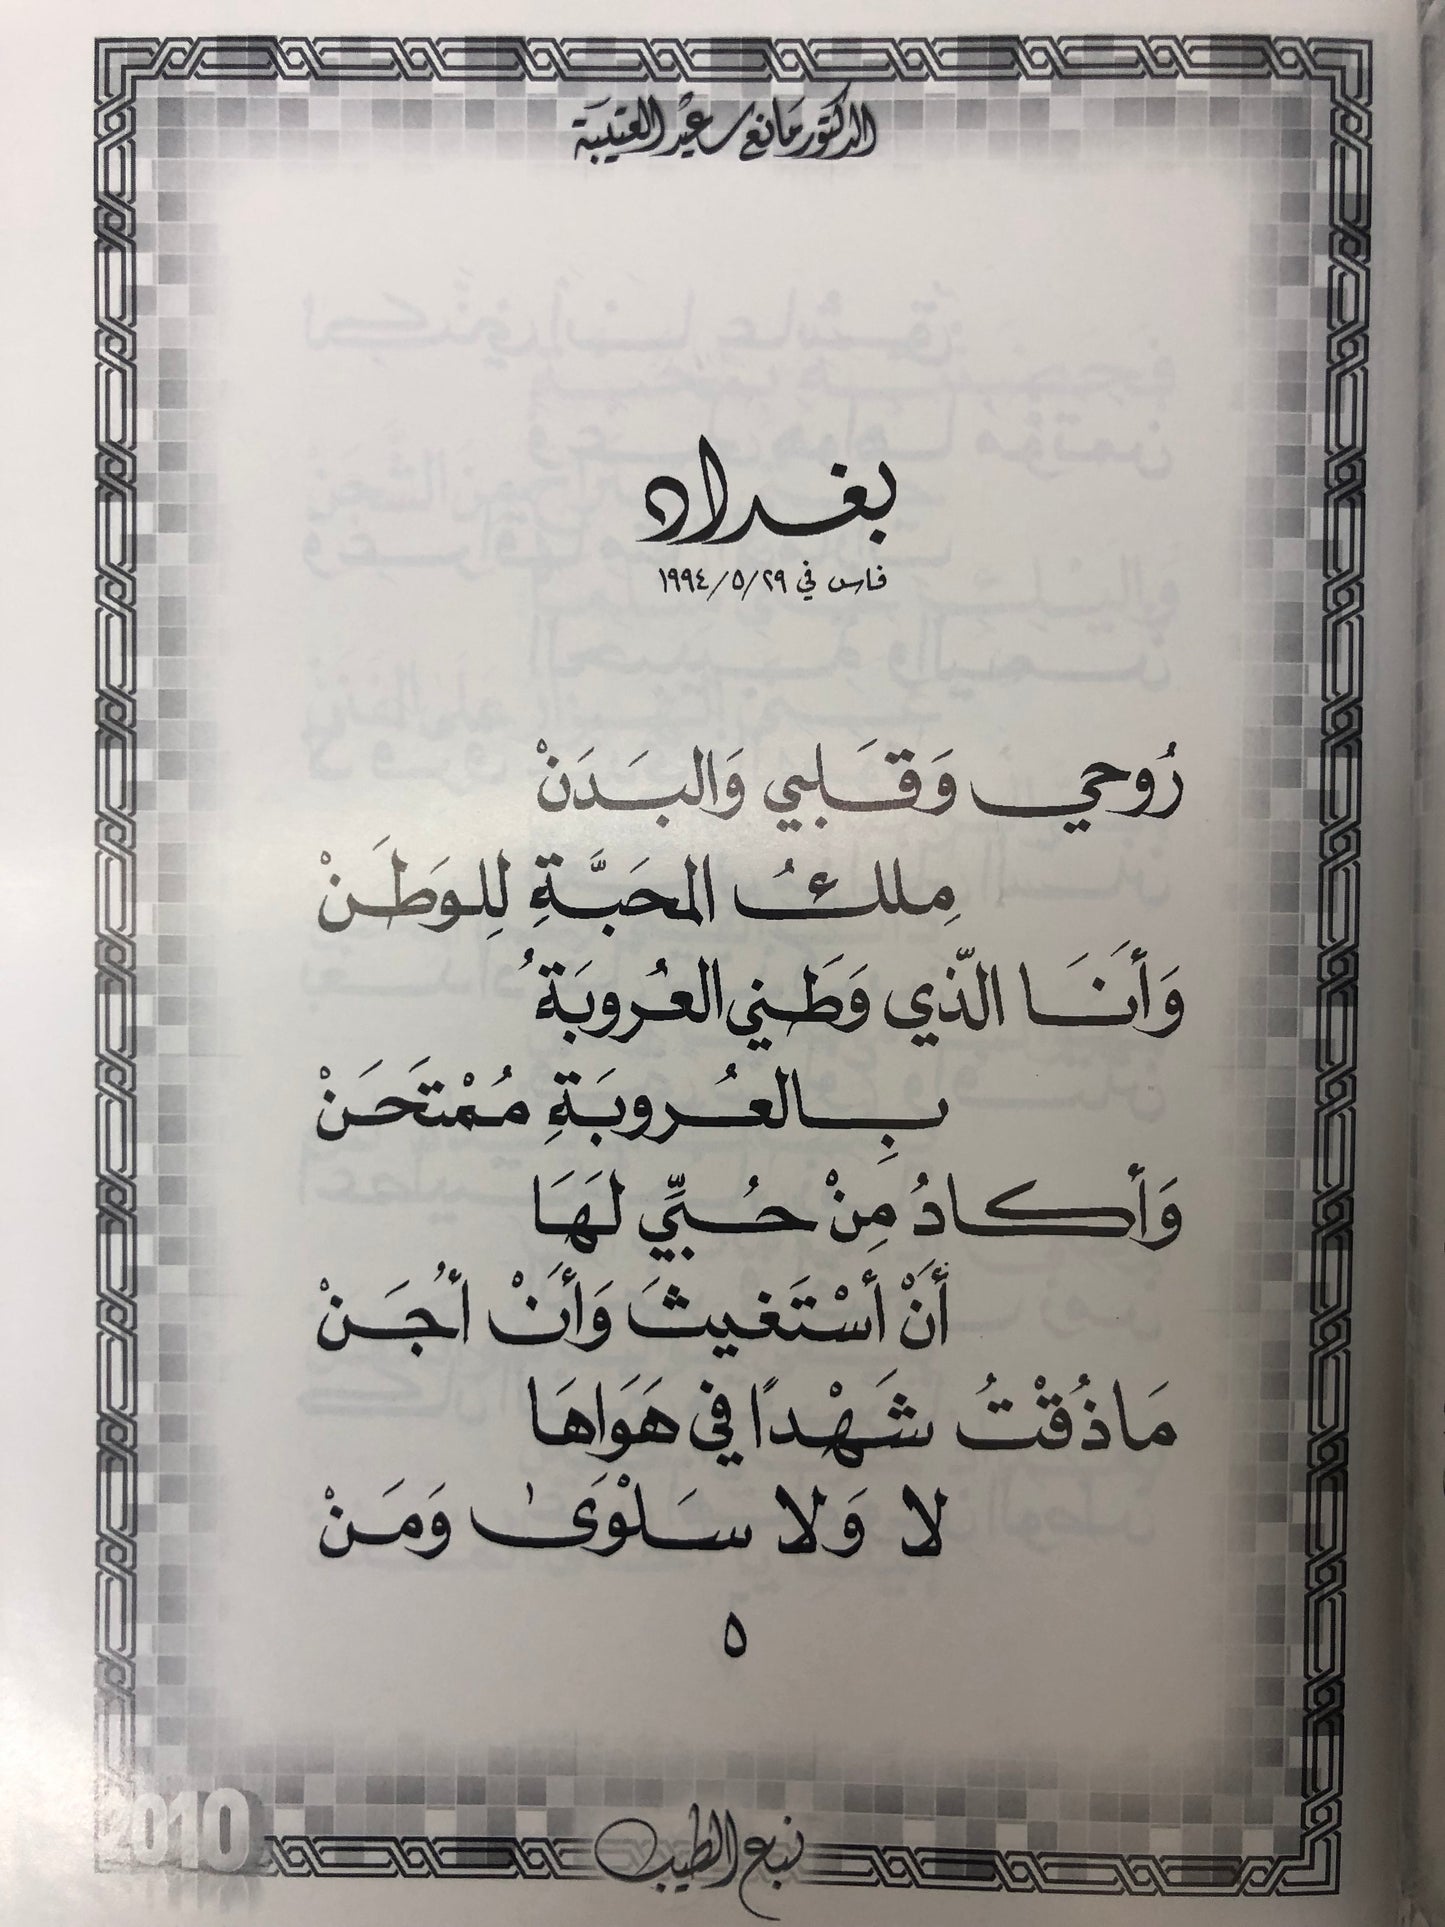 الدكتور مانع سعيد العتيبة
بغداد
فاس في ٢٩/٥/١٩٩٤
رُوحي وَقَلبي وَالبَدَنْ
مِلكُ المحَبَّةِ لِلوَطَنْ
وَأَنَا الّذي وَطَني العُروبَةُ
بِالعُروبَةِ مُمْتَحَنْ
وَأكادُ مِنْ حُبّي لَهَا
أَنْ أسْتَغيثَ وَأَنْ أُجَنْ
مَاذُقْتُ شَهْدًا في هَوَاهَا
لا وَلا سَلْوَىٰ وَمَنْ
٥
2010
نبع الطيب